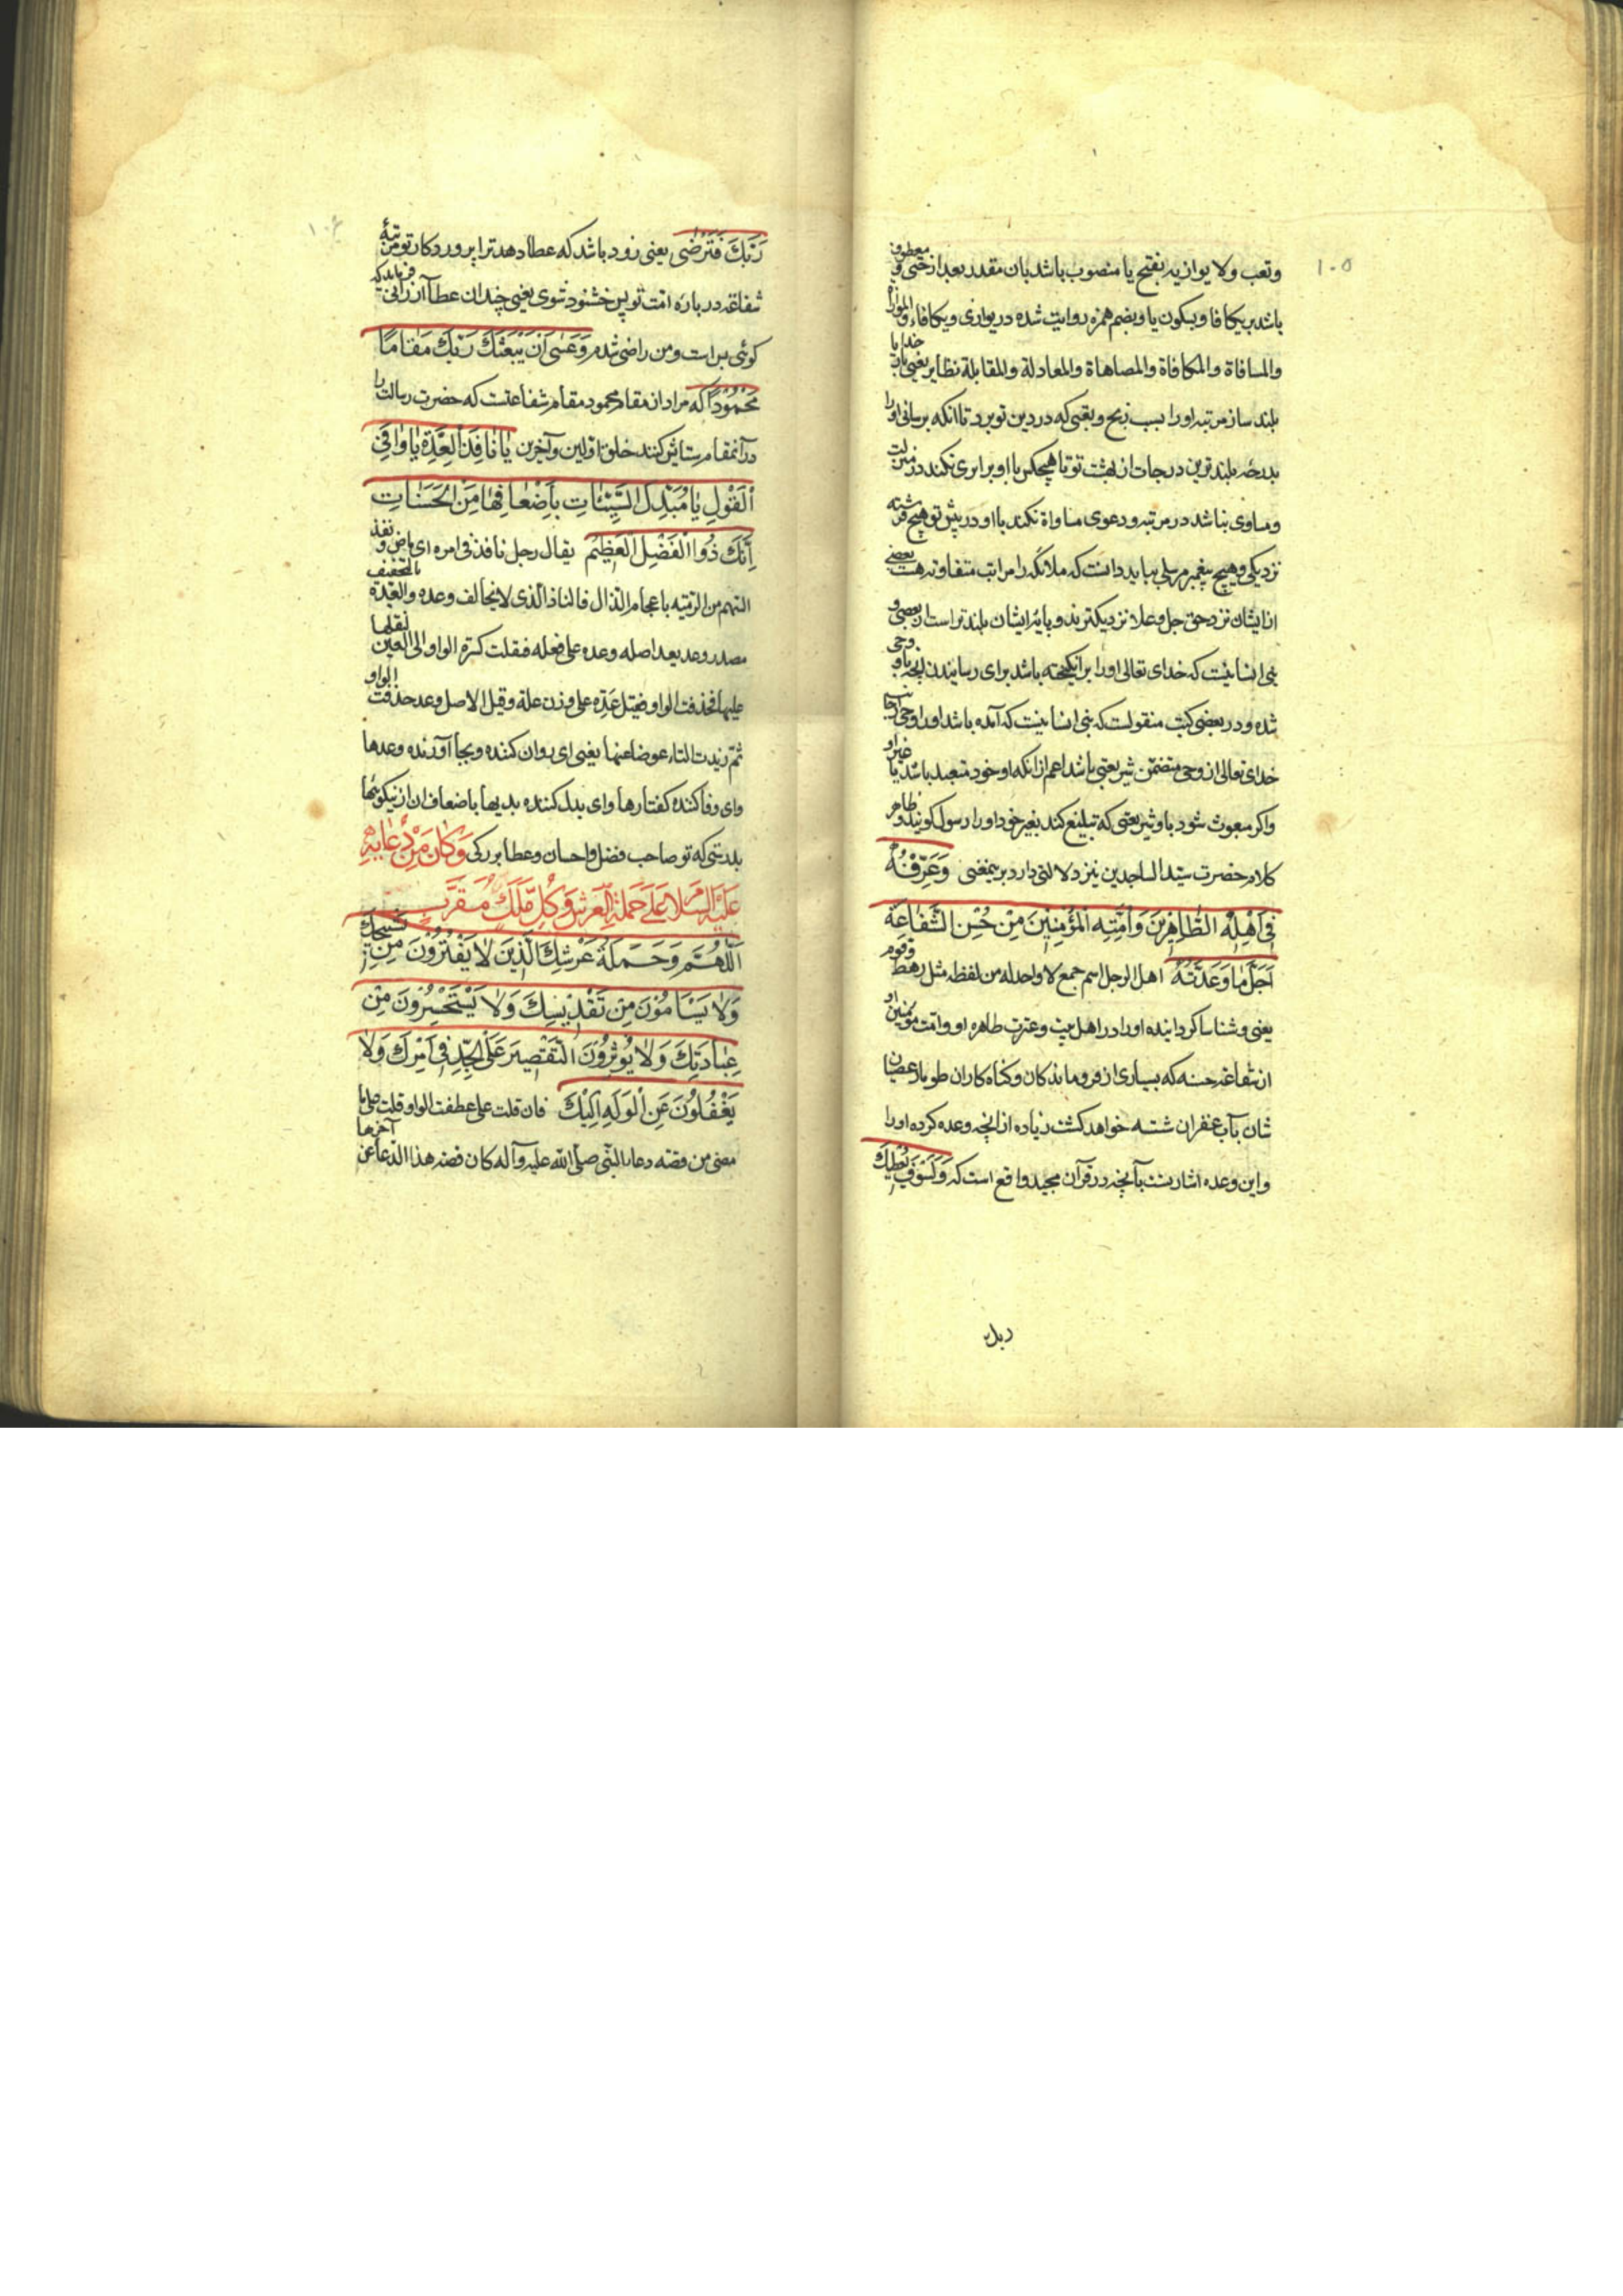 ۱۰۵
وتعب ولا یوازیه بفتح یا منصوب باشد بان مقدر بعد از حتی و معطوف
باشد بر یکافا و بسکون یا و بضم همزه روایت شده در یوازی و یکافاء والموازاة
والمسافاة والمکافاة والمضاهاة والمعادلة والمقابلة نظایر یعنی بار خدایا
بلند ساز مرتبه او را بسبب رنج و تعبی که در دین تو برد تا انکه برسانی او را
بدرجه بلندترین درجات از بهشت تو تا هیچکس با او برابری نکند در منزلت
ومساوی نباشد در مرتبه و دعوی مساواة نکند با او در پیش تو هیچ فرشته
نزدیکی و هیچ پیغمبر مرسلی بباید دانست که ملائکه را مراتب متفاوته هست بعضی
از ایشان نزد حق جل و علا نزدیکترند و پایهٔ ایشان بلندتر است از بعضی و
نبی انسانیست که خدای تعالی او را برانگیخته باشد برای رسانیدن انچه باو وحی
شده و در بعضی کتب منقولست که نبی انسانیست که آمده باشد او را وحی از جانب
خدای تعالی ان وحی متضمن شریعتی باشد اعم از انکه او خود متعبد باشد یا غیر او
واکر مبعوث شود باو شریعتی که تبلیغ کند بغیر خود او را رسول کویند و ظاهر
کلام حضرت سید الساجدین نیز دلالتی دارد برینمعنی وَعَرِّفْهُ
فِی اَهْلِهِ الطَّاهِرِینَ وَاُمَّتِهِ الْمُؤْمِنِینَ مِنْ حُسْنِ الشَّفَاعَةِ
اَجَلَّ مَا وَعَدْتَهُ اهل الرجل اسم جمع لا واحد له من لفظه مثل رهط وقوم
یعنی و شناسا کرداننده او را در اهل بیت و عترت طاهره او و امت مؤمنین او
از شفاعة حسنه که بسیاری از فروماندکان و کناه کاران طومار عصیان
شان بآب غفران شسته خواهد کشت زیاده از انچه وعده کرده او را
واین وعده اشارتست بآنچه در قرآن مجید واقع است که وَلَسَوْفَ یُعْطِیكَ
ربك
رَبُّكَ فَتَرْضٰی یعنی زود باشد که عطا دهد ترا پروردکار تو مرتبهٔ
شفاعة در باره امت تو پس خشنود شوی یعنی چندان عطا ارزانی فرماید که
کوئی بس است و من راضی شدم وَعَسٰی اَنْ یَبْعَثَكَ رَبُّكَ مَقَامًا
مَحْمُودًا که مراد از مقام محمود مقام شفاعتست که حضرت رسالت را
درآنمقام ستایش کنند خلق اولین و آخرین یَا نَافِذَ الْعِدَةِ یَا وَافِیَ
الْقَوْلِ یَا مُبَدِّلَ السَّیِّئَاتِ بِاَضْعَافِهَا مِنَ الْحَسَنَاتِ
اِنَّكَ ذُو الْفَضْلِ الْعَظِیمِ یقال رجل نافذ فی امره ای ماض و نفذ
السهم من الرمیه باعجام الذال فالنافذ الذی لا یخالف وعده والعدة بالتخفیف
مصدر وعد یعد اصله وعده علی فعله فنقلت کسرة الواو الی العین لثقلها
علیها فحذفت الواو فقیل عَدِه علی وزن علة و قیل الاصل وعد حذفت الواو
ثم زیدت التاء عوضا عنها یعنی ای روان کننده و بجا آورنده وعدها
وای وفا کننده کفتارها وای بدل کننده بدیها باضعاف ان از نیکوئیها
بدرستی که تو صاحب فضل و احسان و عطا بزرکی وَکَانَ مِنْ دُعَائِهِ
عَلَیْهِ السَّلَامُ عَلٰی حَمَلَةِ الْعَرْشِ وَکُلِّ مَلَكٍ مُقَرَّبٍ
اَللّٰهُمَّ وَحَمَلَةُ عَرْشِكَ الَّذِینَ لَا یَفْتُرُونَ مِنْ تَسْبِیحِكَ
وَلَا یَسْاَمُونَ مِنْ تَقْدِیسِكَ وَلَا یَسْتَحْسِرُونَ مِنْ
عِبَادَتِكَ وَلَا یُؤْثِرُونَ التَّقْصِیرَ عَلَی الْجِدِّ فِی اَمْرِكَ وَلَا
یَغْفُلُونَ عَنِ الْوَلَهِ اِلَیْكَ فان قلت علی م عطفت الواو قلت علی ما
مضی من قصة دعاء النبی صلی الله علیه وآله کان قصة هذا الدعا عن آخرها